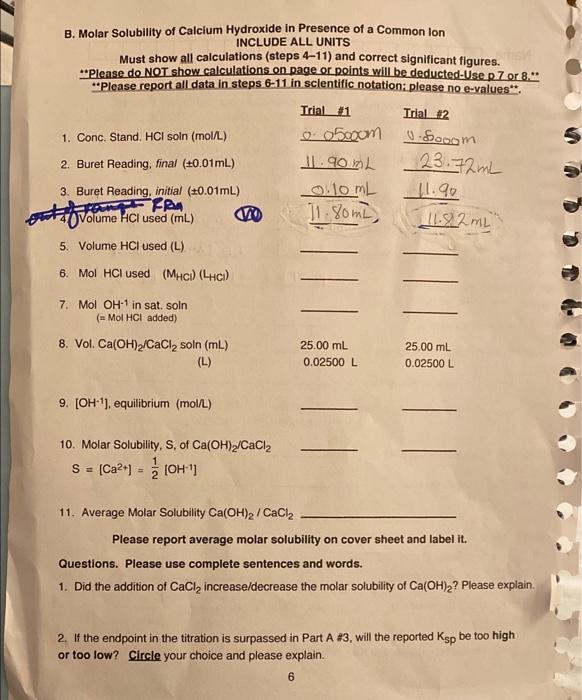 B. Molar Solubility of Calcium Hydroxide in Presence of a Common Ion
INCLUDE ALL UNITS
Must show all calculations (steps 4–11) and correct significant figures.
**Please do NOT show calculations on page or points will be deducted-Use p 7 or 8.**
**Please report all data in steps 6-11 in scientific notation; please no e-values**.
Trial #1 Trial #2
1. Conc. Stand. HCl soln (mol/L) 0.05000m
2. Buret Reading, final (±0.01mL) 11.90 mL 23.72mL
3. Buret Reading, initial (±0.01mL) 0.10 mL 11.90
out of range
4. Volume HCl used (mL) 11.80mL 11.82mL
5. Volume HCl used (L)
6. Mol HCl used (MHCl) (LHCl)
7. Mol OH-1 in sat. soln
(= Mol HCl added)
8. Vol. Ca(OH)2/CaCl2 soln (mL) 25.00 mL 25.00 mL
(L) 0.02500 L 0.02500 L
9. [OH-1], equilibrium (mol/L)
10. Molar Solubility, S, of Ca(OH)2/CaCl2
S = [Ca2+] = 1/2 [OH-1]
11. Average Molar Solubility Ca(OH)2 / CaCl2
Please report average molar solubility on cover sheet and label it.
Questions. Please use complete sentences and words.
1. Did the addition of CaCl2 increase/decrease the molar solubility of Ca(OH)2? Please explain.
2. If the endpoint in the titration is surpassed in Part A #3, will the reported Ksp be too high
or too low? Circle your choice and please explain.
6